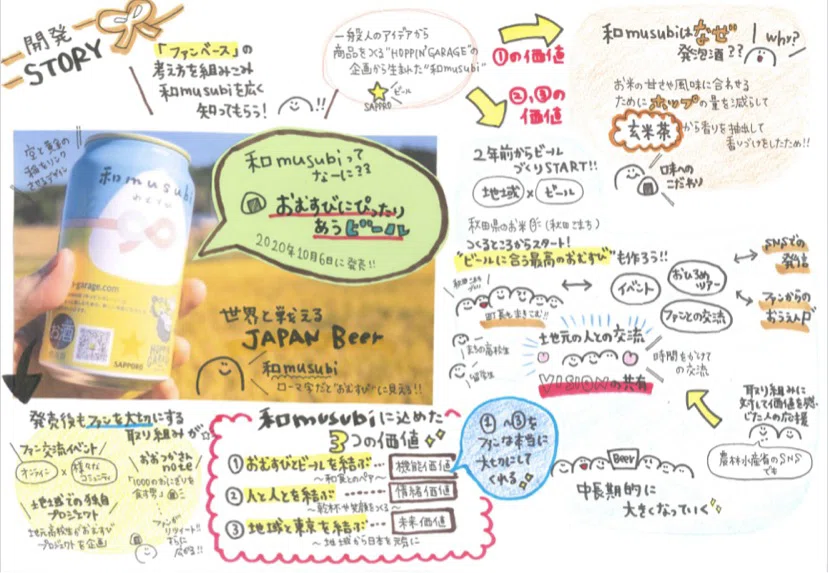 開発
STORY
「ファンベース」の
考え方を組みこみ
和musubiを広く
知ってもらう!
!!
一般人のアイデアから
商品をつくる"HOPPIN' GARAGE"の
企画から生まれた"和musubi"
SAPPORO
ビール
①の価値
②,③の
価値
和musubiはなぜ
発泡酒??
Why?
お米の甘さや風味に合わせる
ためにホップの量を減らして
玄米茶から香りを抽出して
香りづけをしたため!!
口味への
こだわり
空と黄金の
稲をリンク
させるデザイン
和musubi
おむすび
garage.com
お酒
SAPPORO
和musubiって
なーに??
おむすびにぴったり
あうビール
2020年10月6日に発売!!
世界と戦える
JAPAN Beer
和musubi
ローマ字だと"おむすび"に見える!!
2年前からビール
づくりSTART!!
地域 × ビール
秋田県のお米(秋田こまち)
つくるところからスタート!
"ビールに合う最高のおむすび"も作ろう!!
町長もまきこむ!!
まちの高校生
留学生
イベント
おひろめ
ツアー
ファンとの交流
SNSでの
発信
ファンからの
おうえん
土地元の人との交流
VISIONの共有
時間をかけて
の交流
取り組みに
対して価値を感
じた人の応援
農林水産省のSNS
でも
Beer
中長期的に
大きくなっていく
発売後もファンを大切にする
取り組みが
ファン交流イベント
オンライン × 様々な
コミュニティ
土地域での独自
プロジェクト
地元高校生がおむすび
プロジェクトを企画
おおつかさん
note
「1000のおにぎりを
食す男」
ファンが
リツイート!!
さらに
広がる!!
和musubiに込めた
3つの価値
①おむすびとビールを結ぶ…機能価値
～和食とのペア～
②人と人とを結ぶ……情緒価値
～乾杯や笑顔をつくる～
③地域と東京を結ぶ…未来価値
～地域から日本を元気に
①～③を
ファンは本当に
大切にして
くれる